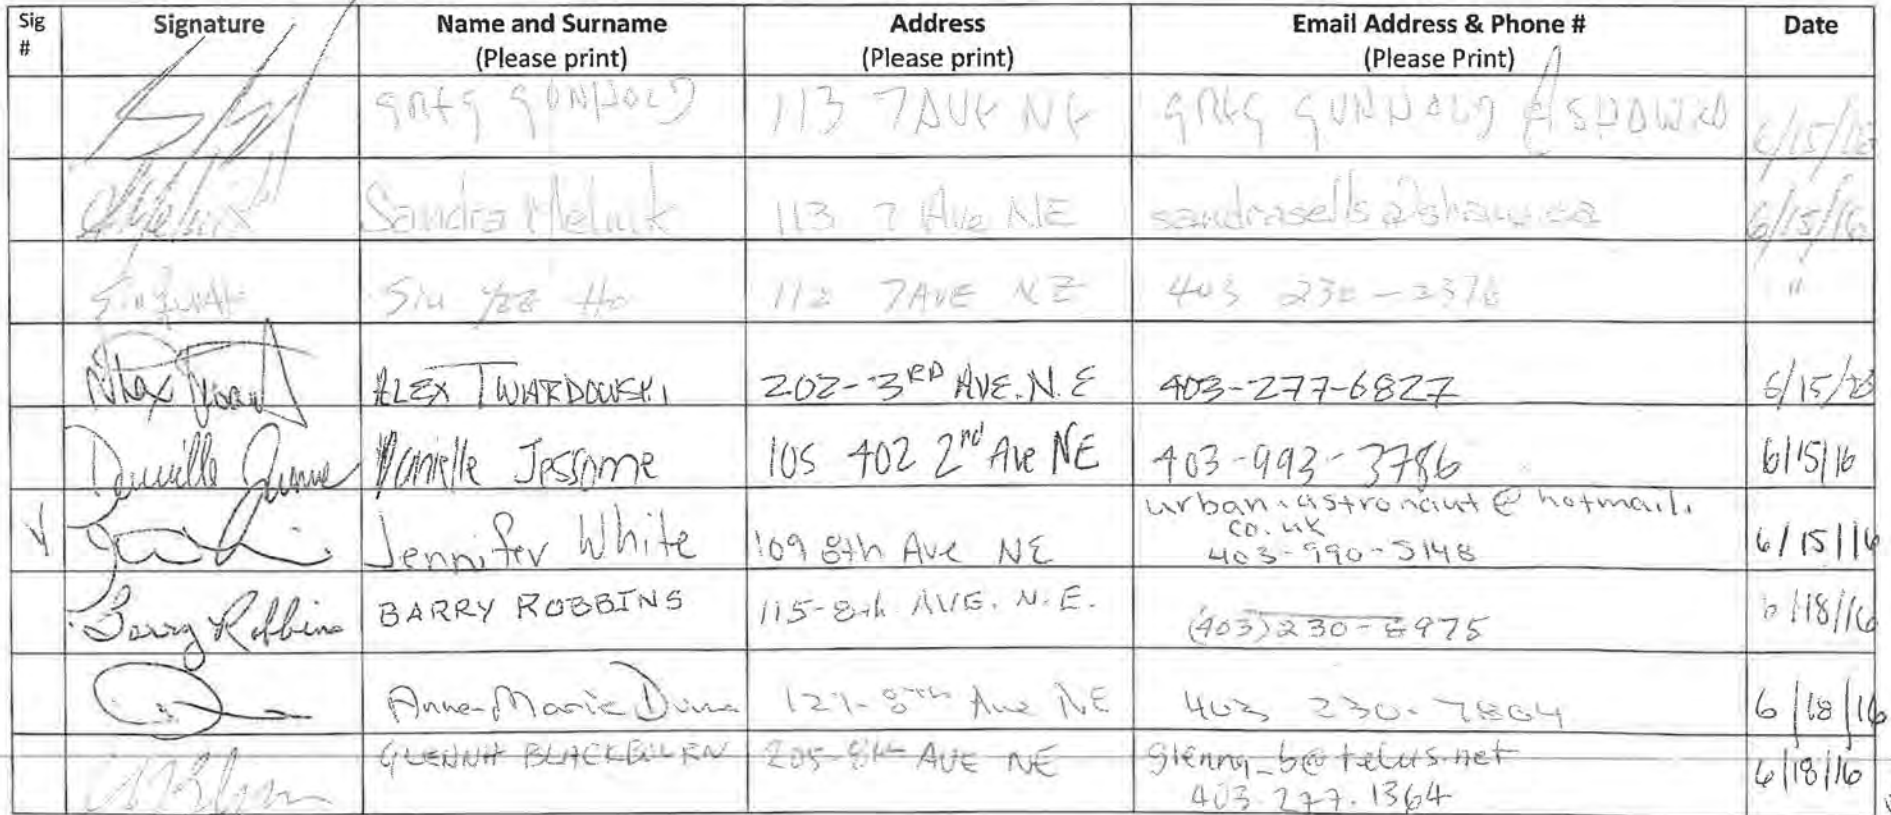 Sig # Signature Name and Surname (Please print) Address (Please print) Email Address & Phone # (Please Print) Date
GREG GUNHOLD 113 7 AVE NE GREG GUNHOLD @ SHAW.CA 6/15/16
Sandra Melnik 113 7 Ave NE sandrasells@shaw.ca 6/15/16
Siu Yee Ho 112 7 AVE NE 403 230-2376 "
Alex ALEX TWARDOWSKI 202-3RD AVE. N.E 403-277-6827 6/15/
Danielle Danielle Jessome 105 402 2nd Ave NE 403-993-3786 6/15/16
√ Jennifer White 109 8th Ave NE urban.astronaut@hotmail.
co.uk
403-990-5148 6/15/16
Barry Robbins BARRY ROBBINS 115-8th AVE. N.E. (403)230-8975 6/18/16
Anne-Marie 127-8th Ave NE 403 230-7804 6/18/16
GLENNA BLACKBURN 205-8th AVE NE glenny_b@telus.net
403.277.1364 6/18/16